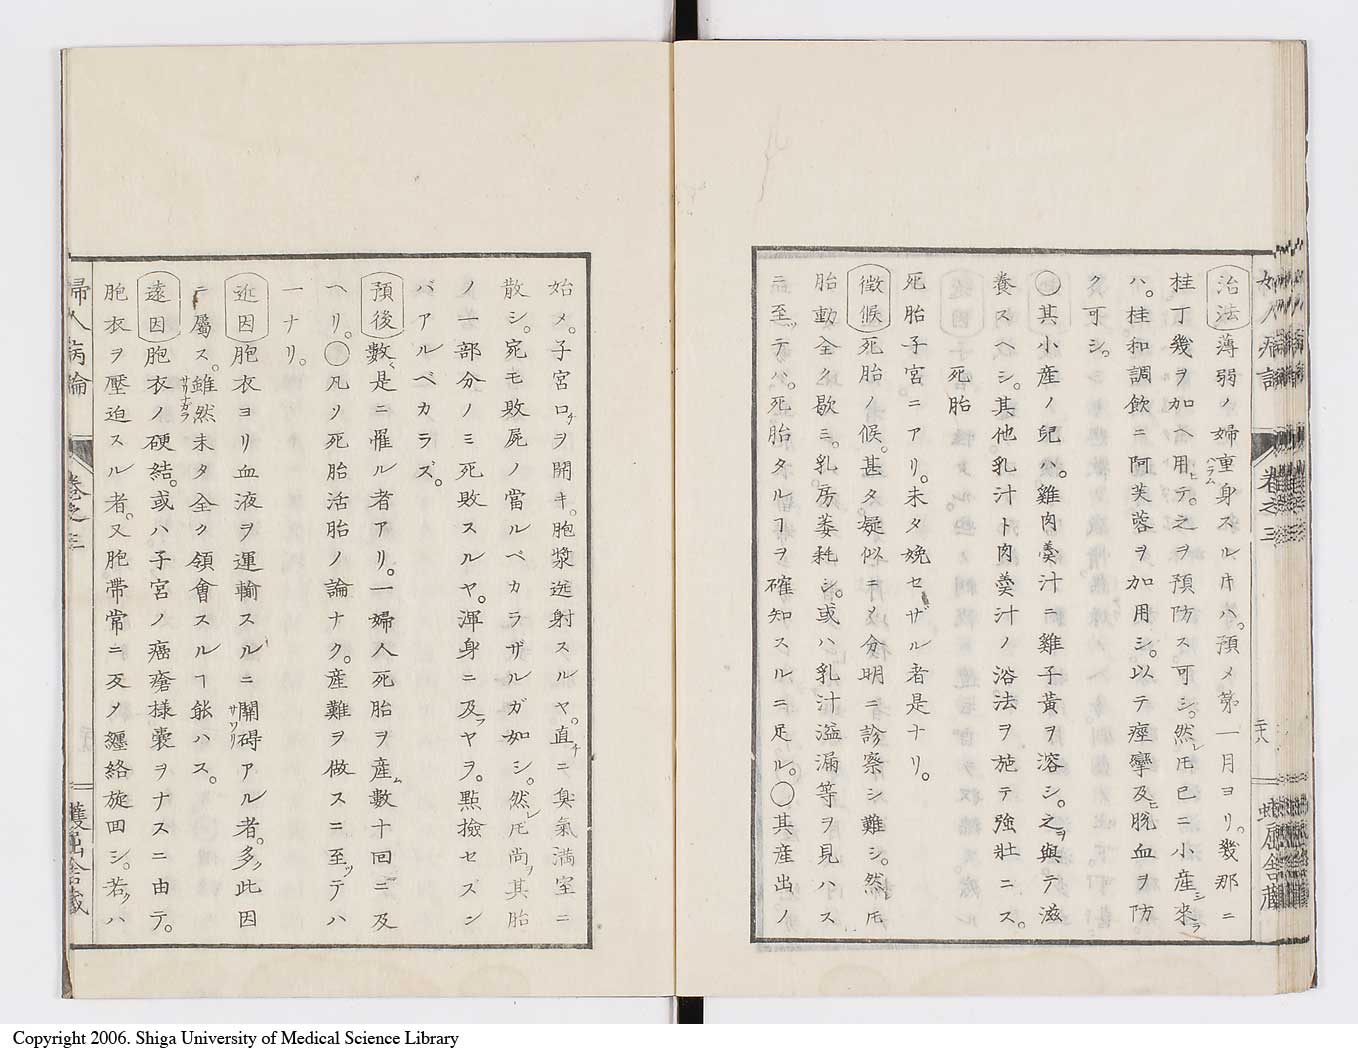 婦人病論 卷之三 二十八 蠖屈舎蔵
治法 薄弱ノ婦重身スル𪜈ハ。預メ第一月ヨリ。幾那ニ
桂丁幾ヲ加ヘ用ヒテ。之ヲ預防ス可シ。然レ𪜈已ニ小産シ來ラ
ハ。桂和調飲ニ阿芙蓉ヲ加用シ。以テ痙攣及ヒ脱血ヲ防
ク可シ。
〇其小産ノ兒ハ。雞肉羹汁ニ雞子黄ヲ溶シ。之ヲ與テ滋
養スヘシ。其他乳汁ト肉羹汁ノ浴法ヲ施テ強壯ニス。
死胎
死胎子宮ニアリ。未タ娩セザル者是ナリ。
徴候 死胎ノ候。甚タ疑似ニメ分明ニ診察シ難シ。然レ𪜈
胎動全ク歇ミ。乳房萎耗シ。或ハ乳汁溢漏等ヲ見ハス
ニ至ッテハ。死胎タルヿヲ確知スルニ足ル。〇其産出ノ
始メ。子宮口チヲ開キ。胞漿迸射スルヤ。直チニ臭氣満室ニ
散シ。宛モ敗屍ノ當ルベカラザルガ如シ。然レ𪜈尚ヲ其胎
ノ一部分ノミ死敗スルヤ。渾身ニ及ヲヤヲ。點撿セズン
バアルベカラズ。
預後 數〻是ニ罹ル者アリ。一婦人死胎ヲ産ム數十回ニ及
ヘリ。〇凡ソ死胎活胎ノ論ナク。産難ヲ做スニ至ッテハ
一ナリ。
近因 胞衣ヨリ血液ヲ運輸スルニ。關碍サワリアル者。多ク此因
ニ屬ス。雖然サリナガラ未タ全ク領會スルヿ能ハス。
遠因 胞衣ノ硬結。或ハ子宮ノ癌瘡様嚢ヲナスニ由テ。
胞衣ヲ壓迫スル者。又胞帶常ニ反メ纏絡旋回シ。若クハ
婦人病論 卷之三 蠖屈舎蔵
Copyright 2006. Shiga University of Medical Science Library